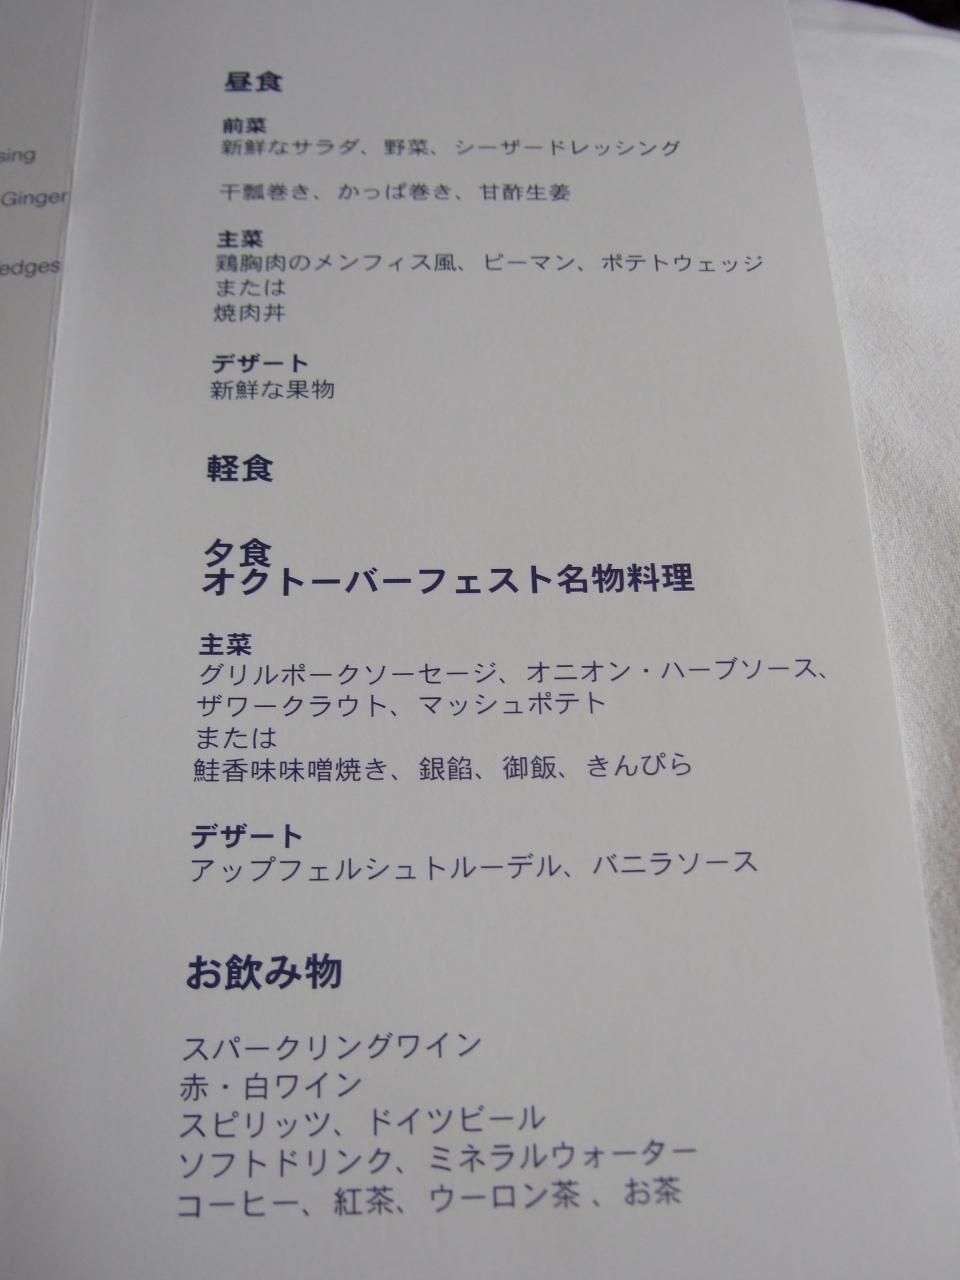 sing
Ginger
edges
昼食
前菜
新鮮なサラダ、野菜、シーザードレッシング
干瓢巻き、かっぱ巻き、甘酢生姜
主菜
鶏胸肉のメンフィス風、ピーマン、ポテトウェッジ
または
焼肉丼
デザート
新鮮な果物
軽食
夕食
オクトーバーフェスト名物料理
主菜
グリルポークソーセージ、オニオン・ハーブソース、
ザワークラウト、マッシュポテト
または
鮭香味味噌焼き、銀餡、御飯、きんぴら
デザート
アップフェルシュトルーデル、バニラソース
お飲み物
スパークリングワイン
赤・白ワイン
スピリッツ、ドイツビール
ソフトドリンク、ミネラルウォーター
コーヒー、紅茶、ウーロン茶 、お茶